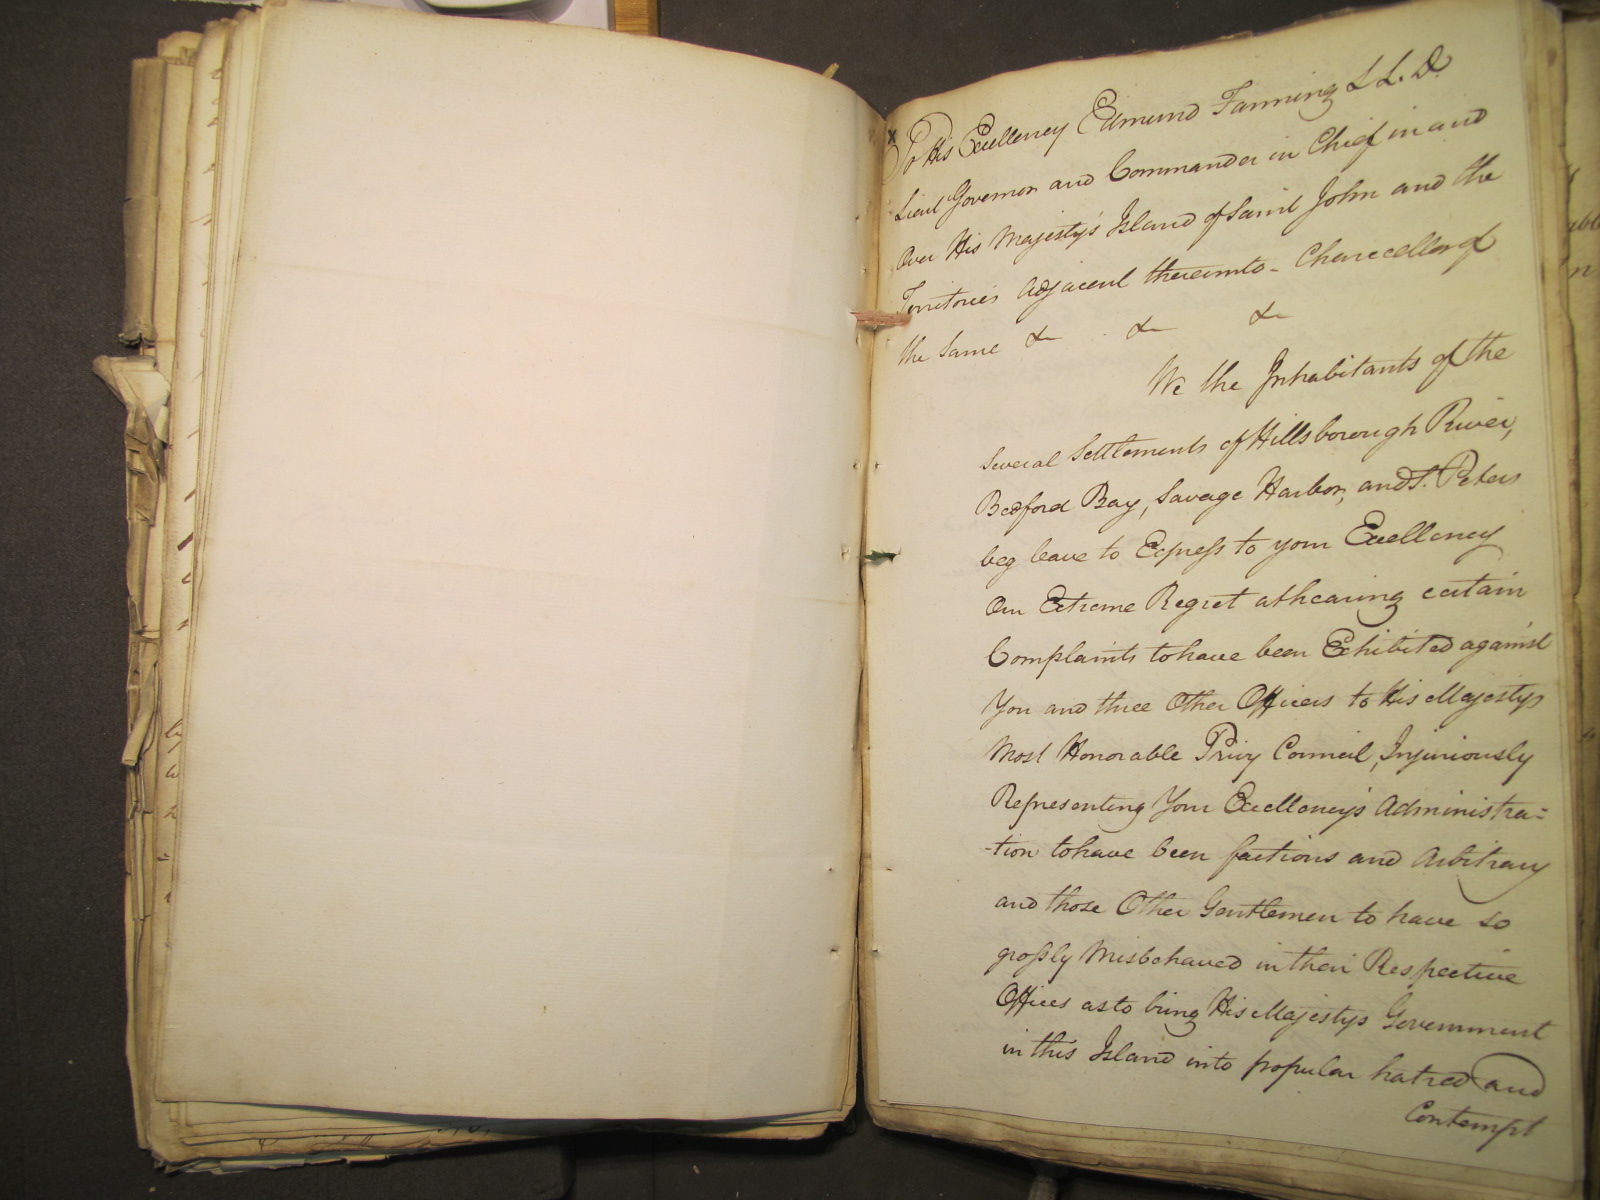 To His Excellency Edmund Fanning L L. D.
Lieut Governor and Commander in Chief in and
Over His Majesty's Island of Saint John and the
Territories Adjacent thereunto - Chancellor of
the Same &c &c &c
We the Inhabitants of the
Several Settlements of Hillsborough River,
Bedford Bay, Savage Harbor, and St. Peters
beg leave to Express to your Excellency
Our Extreme Regret at hearing certain
Complaints to have been Exhibited against
You and three Other Officers to His Majestys
Most Honorable Privy Council, Injuriously
Representing Your Excellency's Administra=
-tion to have been factious and Arbitrary
and those Other Gentlemen to have so
grossly Misbehaved in their Respective
Offices as to bring His Majestys Government
in this Island into popular hatred and
Contempt